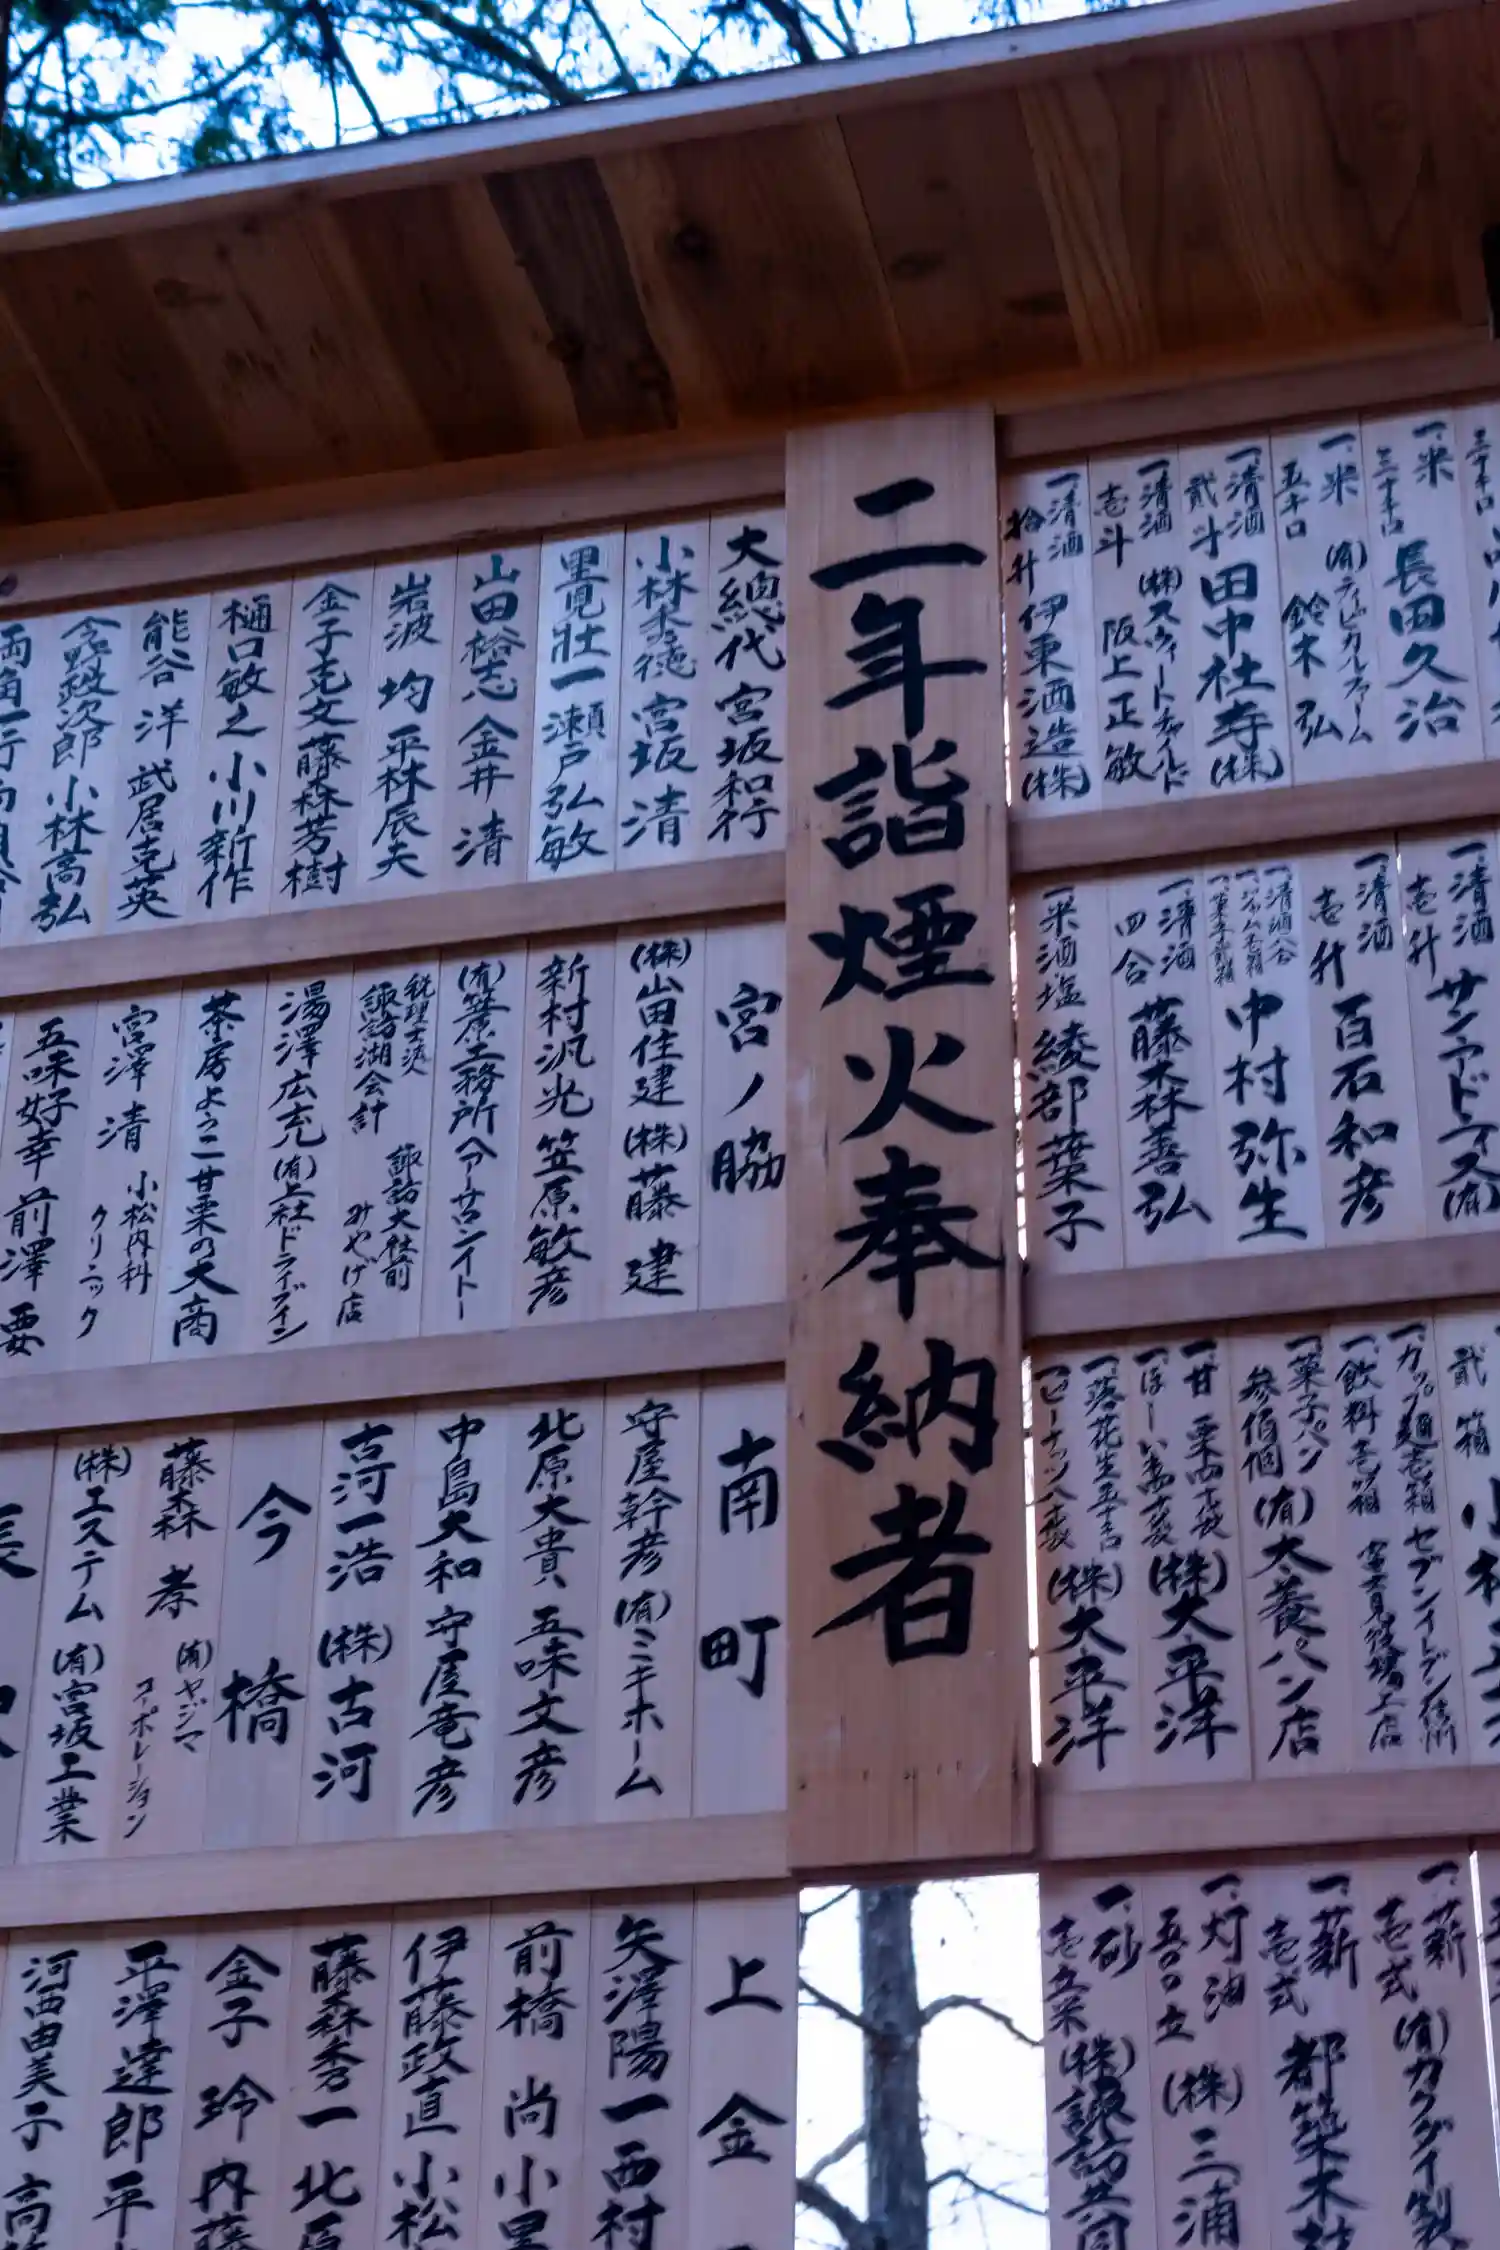 一、米
三十キロ
長田久治
一、米
五キロ
(有)ティピカルファーム
鈴木 弘
一、清酒
貳斗
田中社寺(株)
一、清酒
壱斗
(株)スウィートチャイルド
阪上正敏
一、清酒
拾升
伊東酒造(株)
一、清酒
壱升
サンアドニス(有)
一、清酒
壱升
百石和彦
中村弥生
一、清酒
四合
藤森善弘
一、米酒塩
綾部葉子
貳箱
一、カップ麺壱箱
セブンイレブン
一、飲料壱箱
一、菓子パン
参佰個
(有)太養パン店
一、甘栗四十袋
(株)太平洋
一、落花生五十キロ
一、ピーナッツ八十袋
(株)太平洋
一、薪
壱式
(有)カクダイ製
一、薪
壱式
都築木材
一、灯油
五〇〇立
(株)三浦
一、砂
壱立米
(株)諏訪
二年詣煙火奉納者
大總代 宮坂和行
小林秀徳 宮坂 清
里見壯一 瀬戸弘敏
山田裕志 金井 清
岩波 均 平林辰夫
金子克文 藤森芳樹
樋口敏之 小川新作
能谷 洋 武居克英
小林高弘
宮ノ脇
(株)山田住建 (株)藤 建
新村汎光 笠原敏彦
(有)笠原工務所 ヘアーサロンイトー
税理士法人
諏訪湖会計
諏訪大社前
みやげ店
湯澤広充 (有)上社ドライブイン
茶房よろこ 甘栗の大商
宮澤 清
小松内科
クリニック
五味好幸 前澤 要
南町
守屋幹彦 (有)ミキホーム
北原大貴 五味文彦
中島大和 守屋竜彦
古河一浩 (株)古河
今橋
藤森 孝
(有)ヤジマ
コーポレーション
(株)エステム (有)宮坂工業
上金
矢澤陽一 西村
前橋 尚 小里
伊藤政直 小松
藤森秀一 北原
金子 玲 内藤
平澤達郎 平
河西由美子 高